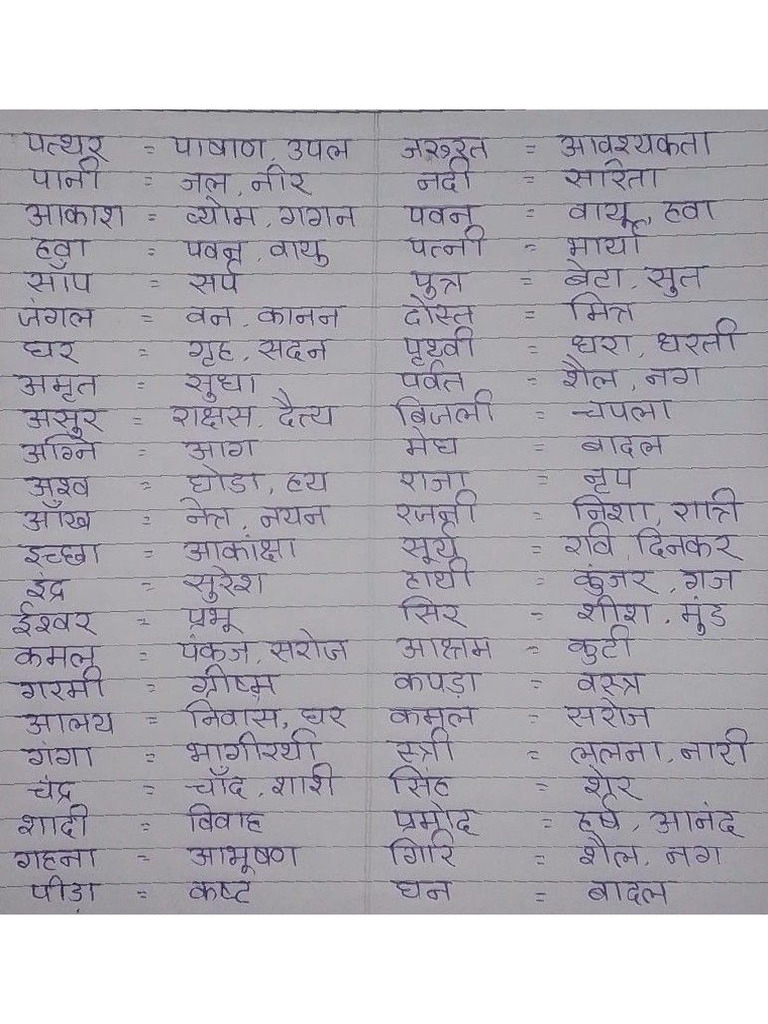 पत्थर = पाषाण, उपल
पानी = जल, नीर
आकाश = व्योम, गगन
हवा = पवन, वायु
साँप = सर्प
जंगल = वन, कानन
घर = गृह, सदन
अमृत = सुधा
असुर = राक्षस, दैत्य
अग्नि = आग
अश्व = घोडा, हय
आँख = नेत्र, नयन
इच्छा = आकांक्षा
इंद्र = सुरेश
ईश्वर = प्रभू
कमल = पंकज, सरोज
गरमी = ग्रीष्म
आलय = निवास, घर
गंगा = भागीरथी
चंद्र = चाँद, शशि
शादी = विवाह
गहना = आभूषण
पीडा = कष्ट
जरूरत = आवश्यकता
नदी = सरिता
पवन = वायू, हवा
पत्नी = भार्या
पुत्र = बेटा, सुत
दोस्त = मित्र
पृथ्वी = धरा, धरती
पर्वत = शैल, नग
बिजली = चपला
मेघ = बादल
राजा = नृप
रजनी = निशा, रात्री
सूर्य = रवि, दिनकर
हाथी = कुंजर, गज
सिर = शीश, मुंड
आश्रम = कुटी
कपड़ा = वस्त्र
कमल = सरोज
स्त्री = ललना, नारी
सिंह = शेर
प्रमोद = हर्ष, आनंद
गिरि = शैल, नग
घन = बादल